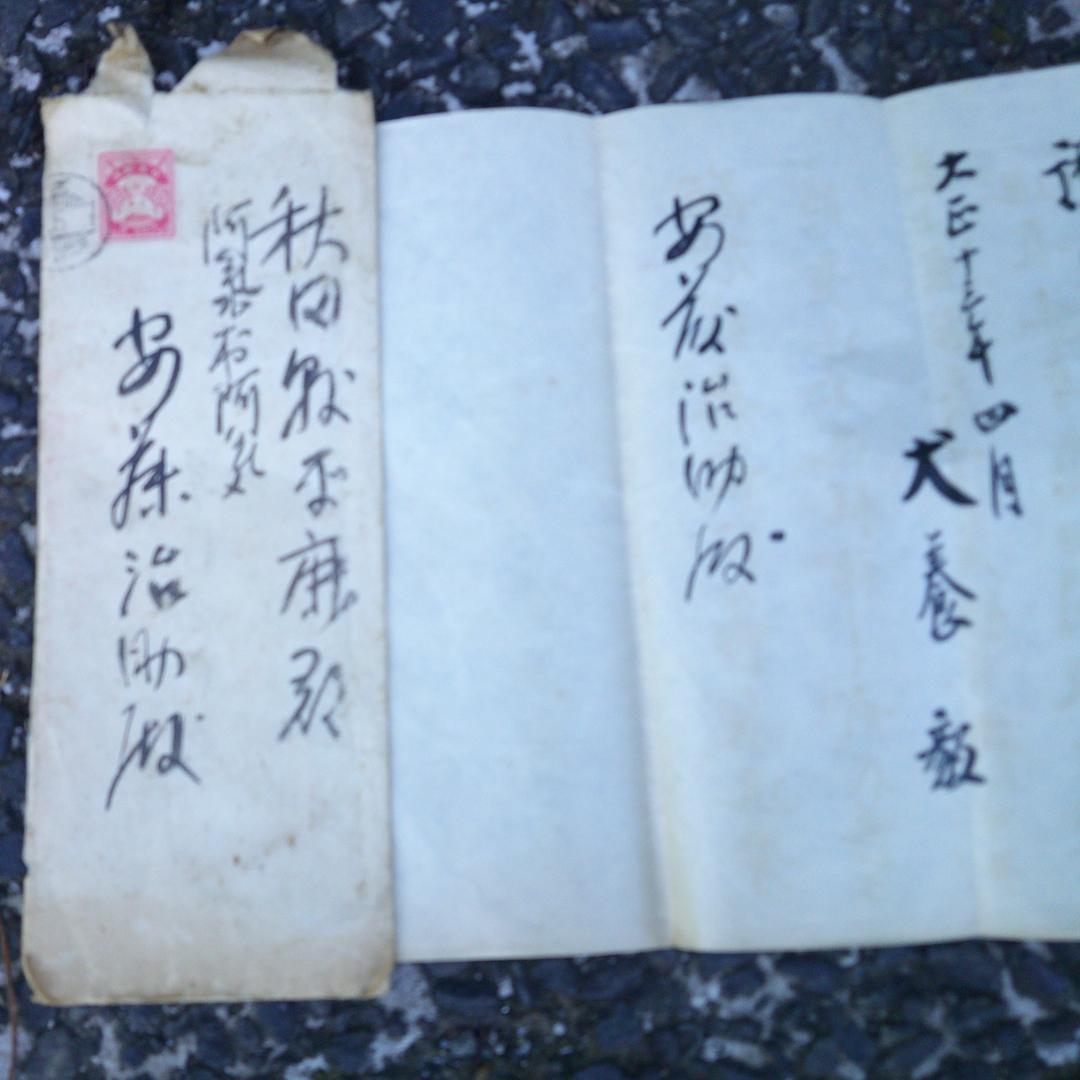 大正十三年四月
犬養毅
安藤治助殿
秋田縣平鹿郡
阿氣村阿氣
安藤治助殿